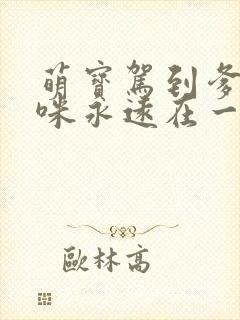 萌寶駕到爹
咪永遠在一
歐林高